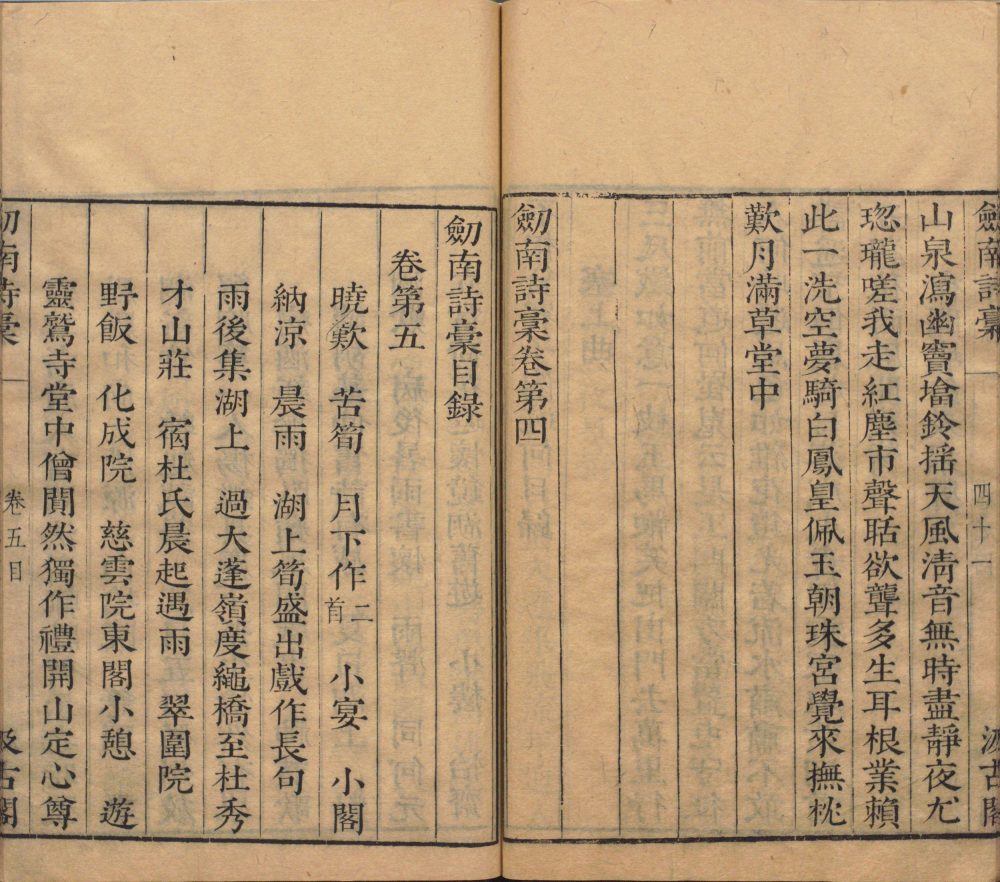 劒南詩稾
四十一
汲古閣
山泉瀉幽竇塔鈴揺天風淸音無時盡靜夜尤
璁瓏嗟我走紅塵市聲聒欲聾多生耳根業賴
此一洗空夢騎白鳳皇佩玉朝珠宮覺來撫枕
歎月滿草堂中
劒南詩稾卷第四
劒南詩稾目錄
卷第五
曉歎 苦筍 月下作二首 小宴 小閣
納涼 晨雨 湖上筍盛出戲作長句
雨後集湖上 過大蓬嶺度繩橋至杜秀
才山莊 宿杜氏晨起遇雨 翠圍院
野飯 化成院 慈雲院東閣小憩 遊
靈鷲寺堂中僧闃然獨作禮開山定心尊
劒南詩稾
卷五目
汲古閣